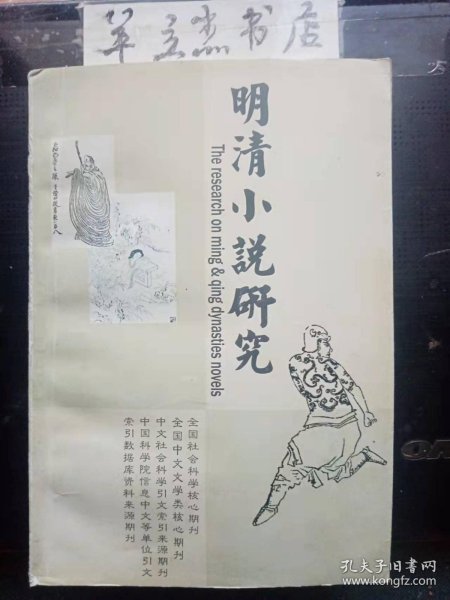 书店
明清小説研究
The research on ming & qing dynasties novels
全国社会科学核心期刊
全国中文文学类核心期刊
中文社会科学引文索引来源期刊
中国科学院信息中文等单位引文
索引数据库资料来源期刊
孔夫子旧书网
www.kongfz.com